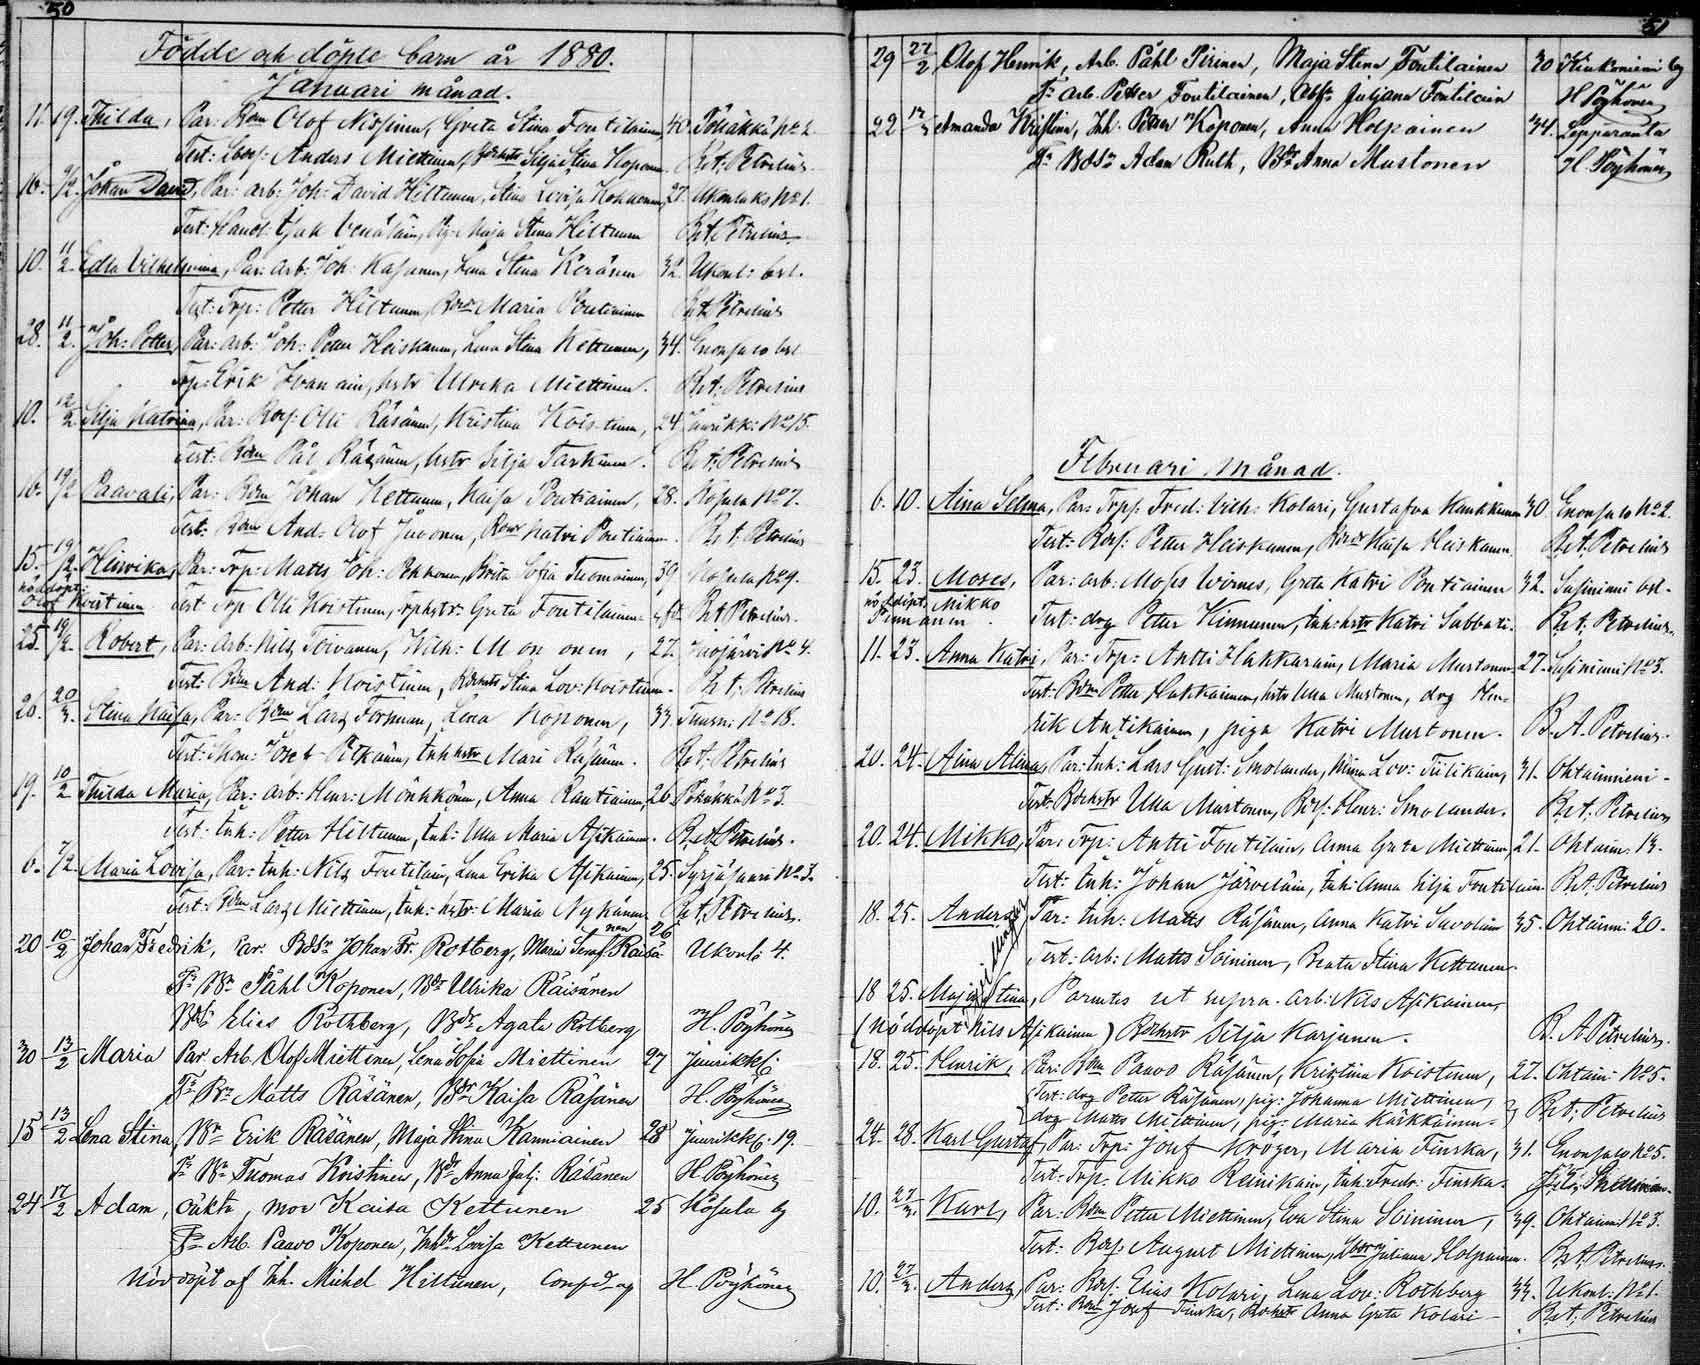 50
Födde och döpte barn år 1880.
Januari månad.
11. 19. Thilda, Par: Bdm Olof Nissinen, Greta Stina Foutilainen, 40. Pöhäkkä No 2.
Test: Anders Miettinen, Silja Stina Koponen. Bet: Petrelius.
10. 9/2. Johan David, Par: arb: Joh: David Hiltunen, Stina Lovisa Kokkonen, 27. Ukonlaks No 1.
Test: Maja Stina Hiltunen Bet: Petrelius.
10. 11/2. Edla Vilhelmina, Par: Arb: Joh: Kasanen, Lena Stina Keränen 32. Ukonl: bol.
Test: Trp: Petter Hiltunen, Maria Pontinen Bet. Petrelius
28. 11/2. Joh: Petter, Par: Arb: Joh: Petter Heiskanen, Lena Stina Kettunen, 34. Enonsalo bol
Trp: Erik Ivanain, hstr Ulrika Miettinen. Bet: Petrelius
10. 12/2 Silja Katrina, Par: Olli Räsänen, Kristina Koistinen, 24. Juurikk: No 15.
Test: Bdm Pål Räsänen, hstr Silja Tarkinen. Bet: Petrelius
10. 19/2 Paavali, Par: Bdm Johan Kettunen, Kaisa Pontiainen, 28. Kosula No 7.
Test: Bdm And: Olof Juvonen, Katri Pontiainen. Bet: Petrelius
15. 19/2. Henrika, Par: Trp: Matts Joh: Pekkonen, Brita Sofia Tuomainen, 39 Kosula No 9.
nöddöpt: Olof Koistinen Test Trp Olli Koistinen, Trphstr: Greta Foutilainen Bet Petrelius.
25. 19/2. Robert, Par: Arb: Nils Toivanen, Wilh: Mononen, 27. Juojärvi No 4.
Test: Bdm And: Koistinen, Stina Lov: Koistinen. Bet: Petrelius
20. 20/3. Stina Kaisa, Par: Bdm Lars Forsman, Lena Kosonen, 33 Tuusn: No 18.
Test: Josef Pitkänen, Inhhstr Mari Räsänen. Bet: Petrelius
19. 10/2 Thilda Maria, Par: Arb: Henr: Mönkkönen, Anna Rautiainen, 26 Pöhäkkä No 3.
Test: Inh: Petter Hiltunen, Inh: Ulla Maria Asikainen. Bet Petrelius.
6. 7/2. Maria Lovisa, Par: Inh: Nils Foutilain, Lena Erika Asikainen, 25. Syrjäsaari No 3.
Test: Bdm Lars Miettinen, Inh: hstr: Maria Nykänen Bet, Petrelius.
20 10/2 Johan Fredrik, Par. Bdsr Johan Fr. Rotberg, Maria Sof. Räisänen 26 Ukonl: 4.
Fr Br Påhl Koponen, Bdr Ulrika Räisänen
Elias Rothberg, Bdr Agata Rotberg H. Pöyhönen
30 13/2 Maria Par Arb. Olof Miettinen, Lena Sofia Miettinen 27 Juurikk:
Fr Br Matts Räsänen, Bdr Kaisa Räsänen H. Pöyhönen
15 13/2 Lena Stina, Br Erik Räsänen, Maja Stina Kanniainen 28 Juurikk: 19.
Fr Br Tuomas Koistinen, Bdr Anna Julj. Räsänen H Pöyhönen
24 17/2 Adam, oäkta, mor Kaisa Kettunen 25 Kosula by
Fr Arb. Paavo Koponen, Lovisa Kettunen
Nöddöpt af Inh. Michel Hiltunen, H. Pöyhönen
51
29 27/2 Olof Henrik, Arb. Påhl Pirinen, Maja Stina Foutilainen 30 Kinkoniemi by
Fr arb. Petter Foutilainen, Juljana Foutilain H Pöyhönen
22 Amanda Kristina, Inh. Petter Koponen, Anna Holpainen 34. Lepperanta
Fr Bdsr Adam Ruth, Anna Mustonen H. Pöyhönen
Februari månad.
6. 10. Aina Selma, Par: Trp: Fred: Vilh: Kolari, Gustafva Kaukkunen 30. Enonsalo No 2.
Test: Petter Heiskanen, Kaisa Heiskanen. Bet. Petrelius
15. 23. Moses, Par: arb: Moses Wirnes, Greta Katri Pontiainen 32. Susiniemi bol.
nöddöpt: Mikko Pennanen. Test: drg Petter Kinnunen, Inh: hstr Katri Sabbati. Bet; Petrelius.
11. 23. Anna Katri, Par: Trp: Antti Hakkarain, Maria Murtonen 27. Susiniemi No 3.
Test: Bdm Petter Hakkarainen, hstr Ulla Murtonen, drg Hen-
rik Antikainen, piga Katri Murtonen. B. A. Petrelius.
20. 24. Aina Alina, Par: Inh: Lars Gust: Smolander, Miina Lov: Tulikain, 31. Ohtaanniemi.
Test: Ulla Murtonen, Henr: Smolander. Bet. Petrelius
20. 24. Mikko, Par: Trp: Antti Foutilain, Anna Greta Miettinen, 21. Ohtaan: 13.
Test: Inh: Johan Järveläin, Inh: Anna Silja Foutilain. Bet. Petrelius
18. 25. Anders, Par: Inh: Matts Räsänen, Anna Katri Savolain 35. Ohtaann: 20.
tvillingar
Test: Arb: Matts Soininen, Beata Stina Kettunen
18 25. Maja Stina, Parentes ut supra. Arb: Nils Asikainen,
(nöddöpt Nils Asikainen) Silja Karjunen. B. A. Petrelius.
18. 25. Henrik, Par: Bdm Paavo Räsänen, Kristina Koistinen, 27. Ohtaan: No 5.
Test: drg Petter Räsänen, pig: Johanna Miettinen,
drg Matts Miettinen, pig: Maria Kärkkäinen. Bet; Petrelius
24. 28. Karl Gustaf, Par: Trp: Josef Kröger, Maria Finska, 31. Enonsalo No 5.
Test: Trp: Mikko Reinikain, Inh: Fredr: Finska.
10. 27/3. Karl, Par: Bdm Petter Miettinen, Eva Stina Soininen, 39. Ohtaann: No 3.
Test: August Miettinen, Juliana Holpainen. Bet, Petrelius.
10. 27/3. Anders, Par: Elias Kolari, Lena Lov: Rothberg 33. Ukonl: No 1.
Test: Bdm Josef Finska, Anna Greta Kolari Bet; Petrelius